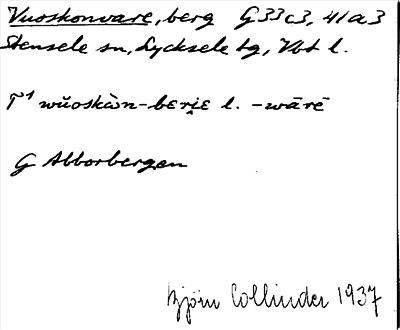 Vuoskonvare, berg G33c3, 41a3
Stensele sn, Lycksele tg, Vbt l.
T¹ wŭoskὰn-bɛri̯e l. -wārē
G Abborbergen
Björn Collinder 1937